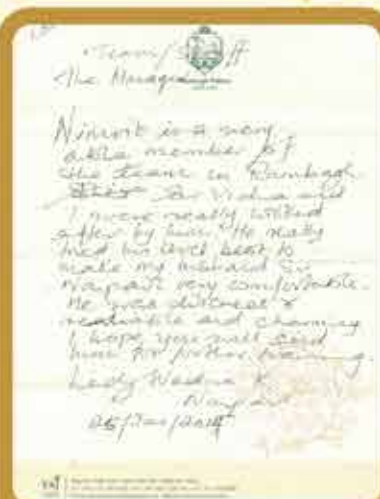 Team/Staff
The Manager
Nimrit is a very
able member of
the team in Rambagh
Sir Vidia and
I were really looked
after by him. He really
tried his level best to
make my husband Sir
Naipaul very comfortable.
He was discreet &
and charming
I hope you will send
him for further training.
Lady Nadira K
Naipaul